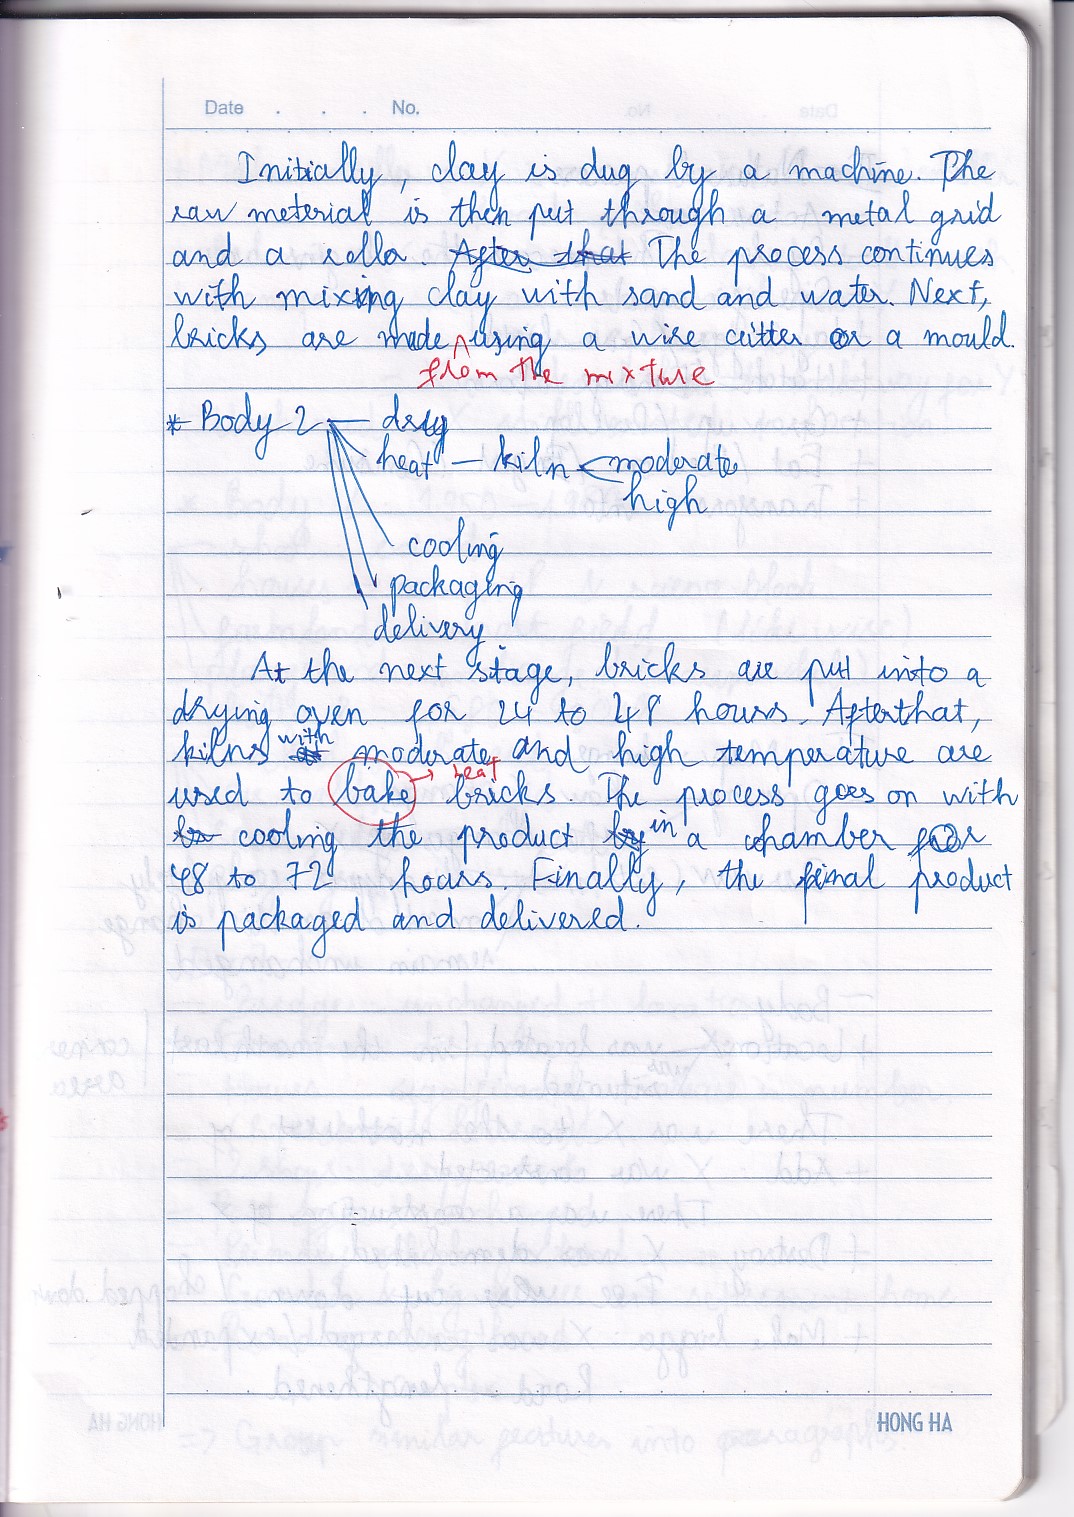 Date . . . No.
Initially, clay is dug by a machine. The
raw meterial is then put through a metal grid
and a rolla. After that The process continues
with mixing clay with sand and water. Next,
bricks are made ^ using a wire cutter or a mould.
from the mixture
* Body 2 — dry
heat — kiln < moderate
high
cooling
packaging
delivery
At the next stage, bricks are put into a
drying oven for 24 to 48 hours. Afterthat,
kilns with moderate and high temperature are
used to bake → heat bricks. The process goes on with
cooling the product by in a chamber for
48 to 72 hours. Finally, the final product
is packaged and delivered.
HONG HA